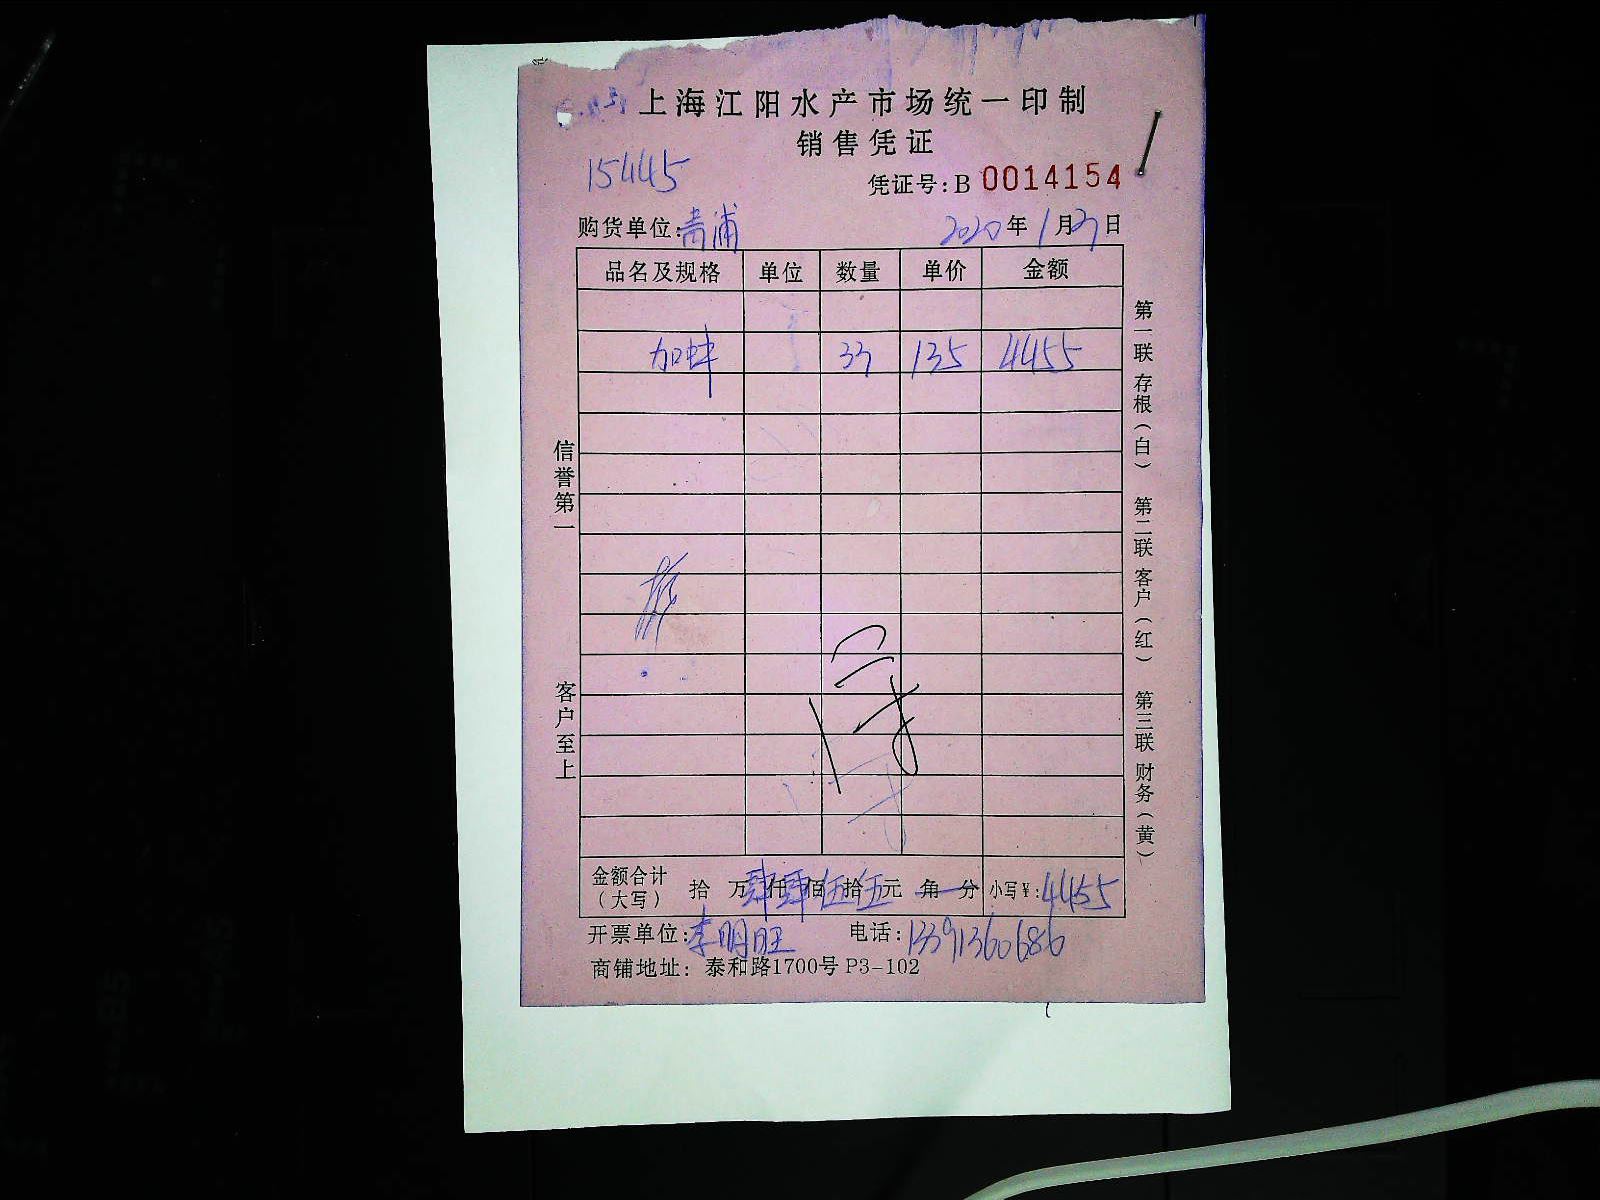 上海江阳水产市场统一印制
销售凭证
15445
凭证号:B 0014154
购货单位:青浦 2020年1月27日
品名及规格 单位 数量 单价 金额
加蚌 33 135 4455
信誉第一
客户至上
第一联存根(白) 第二联客户(红) 第三联财务(黄)
金额合计(大写) 拾 万肆仟肆佰伍拾伍元 角 分 小写¥:4455
开票单位:李明旺 电话:13391360686
商铺地址: 泰和路1700号 P3-102